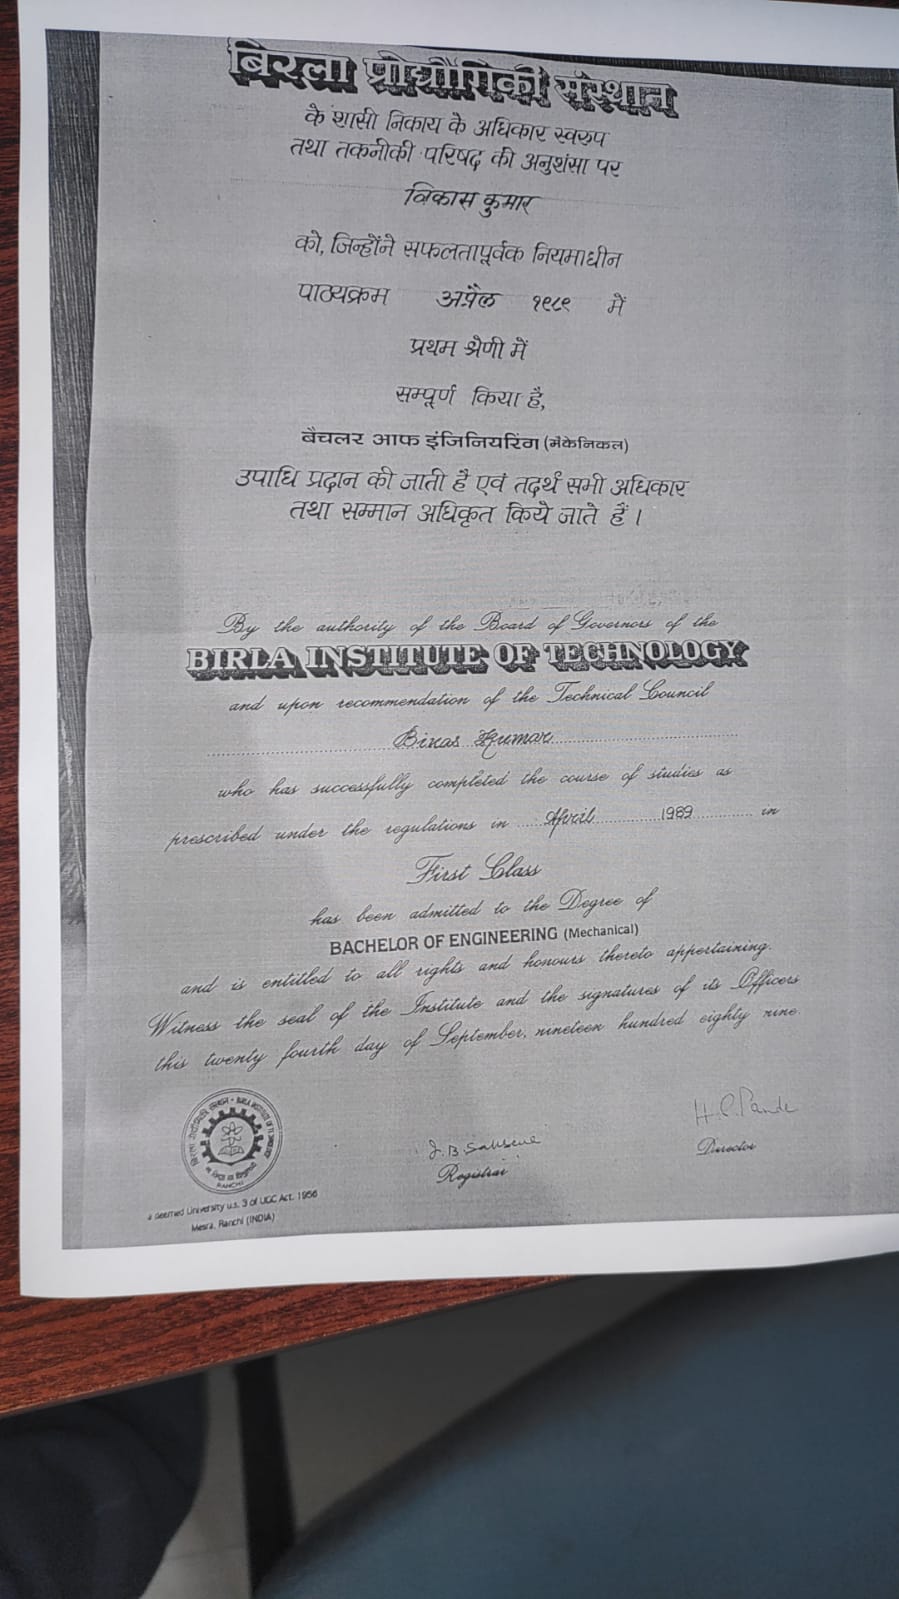 बिरला प्रौद्योगिकी संस्थान
के शासी निकाय के अधिकार स्वरुप
तथा तकनीकी परिषद की अनुशंसा पर
विकास कुमार
को, जिन्होंने सफलतापूर्वक नियमाधीन
पाठ्यक्रम अप्रैल १९८९ में
प्रथम श्रेणी में
सम्पूर्ण किया है,
बैचलर आफ इंजिनियरिंग (मैकेनिकल)
उपाधि प्रदान की जाती है एवं तदर्थ सभी अधिकार
तथा सम्मान अधिकृत किये जाते हैं ।
By the authority of the Board of Governors of the
BIRLA INSTITUTE OF TECHNOLOGY
and upon recommendation of the Technical Council
Bikas Kumar
who has successfully completed the course of studies as
prescribed under the regulations in April 1989 in
First Class
has been admitted to the Degree of
BACHELOR OF ENGINEERING (Mechanical)
and is entitled to all rights and honours thereto appertaining.
Witness the seal of the Institute and the signatures of its Officers
this twenty fourth day of September, nineteen hundred eighty nine.
RANCHI
H.C. Pande
Director
J.B. Saksena
Registrar
a deemed University u.s. 3 of UGC Act. 1956
Mesra, Ranchi (INDIA)